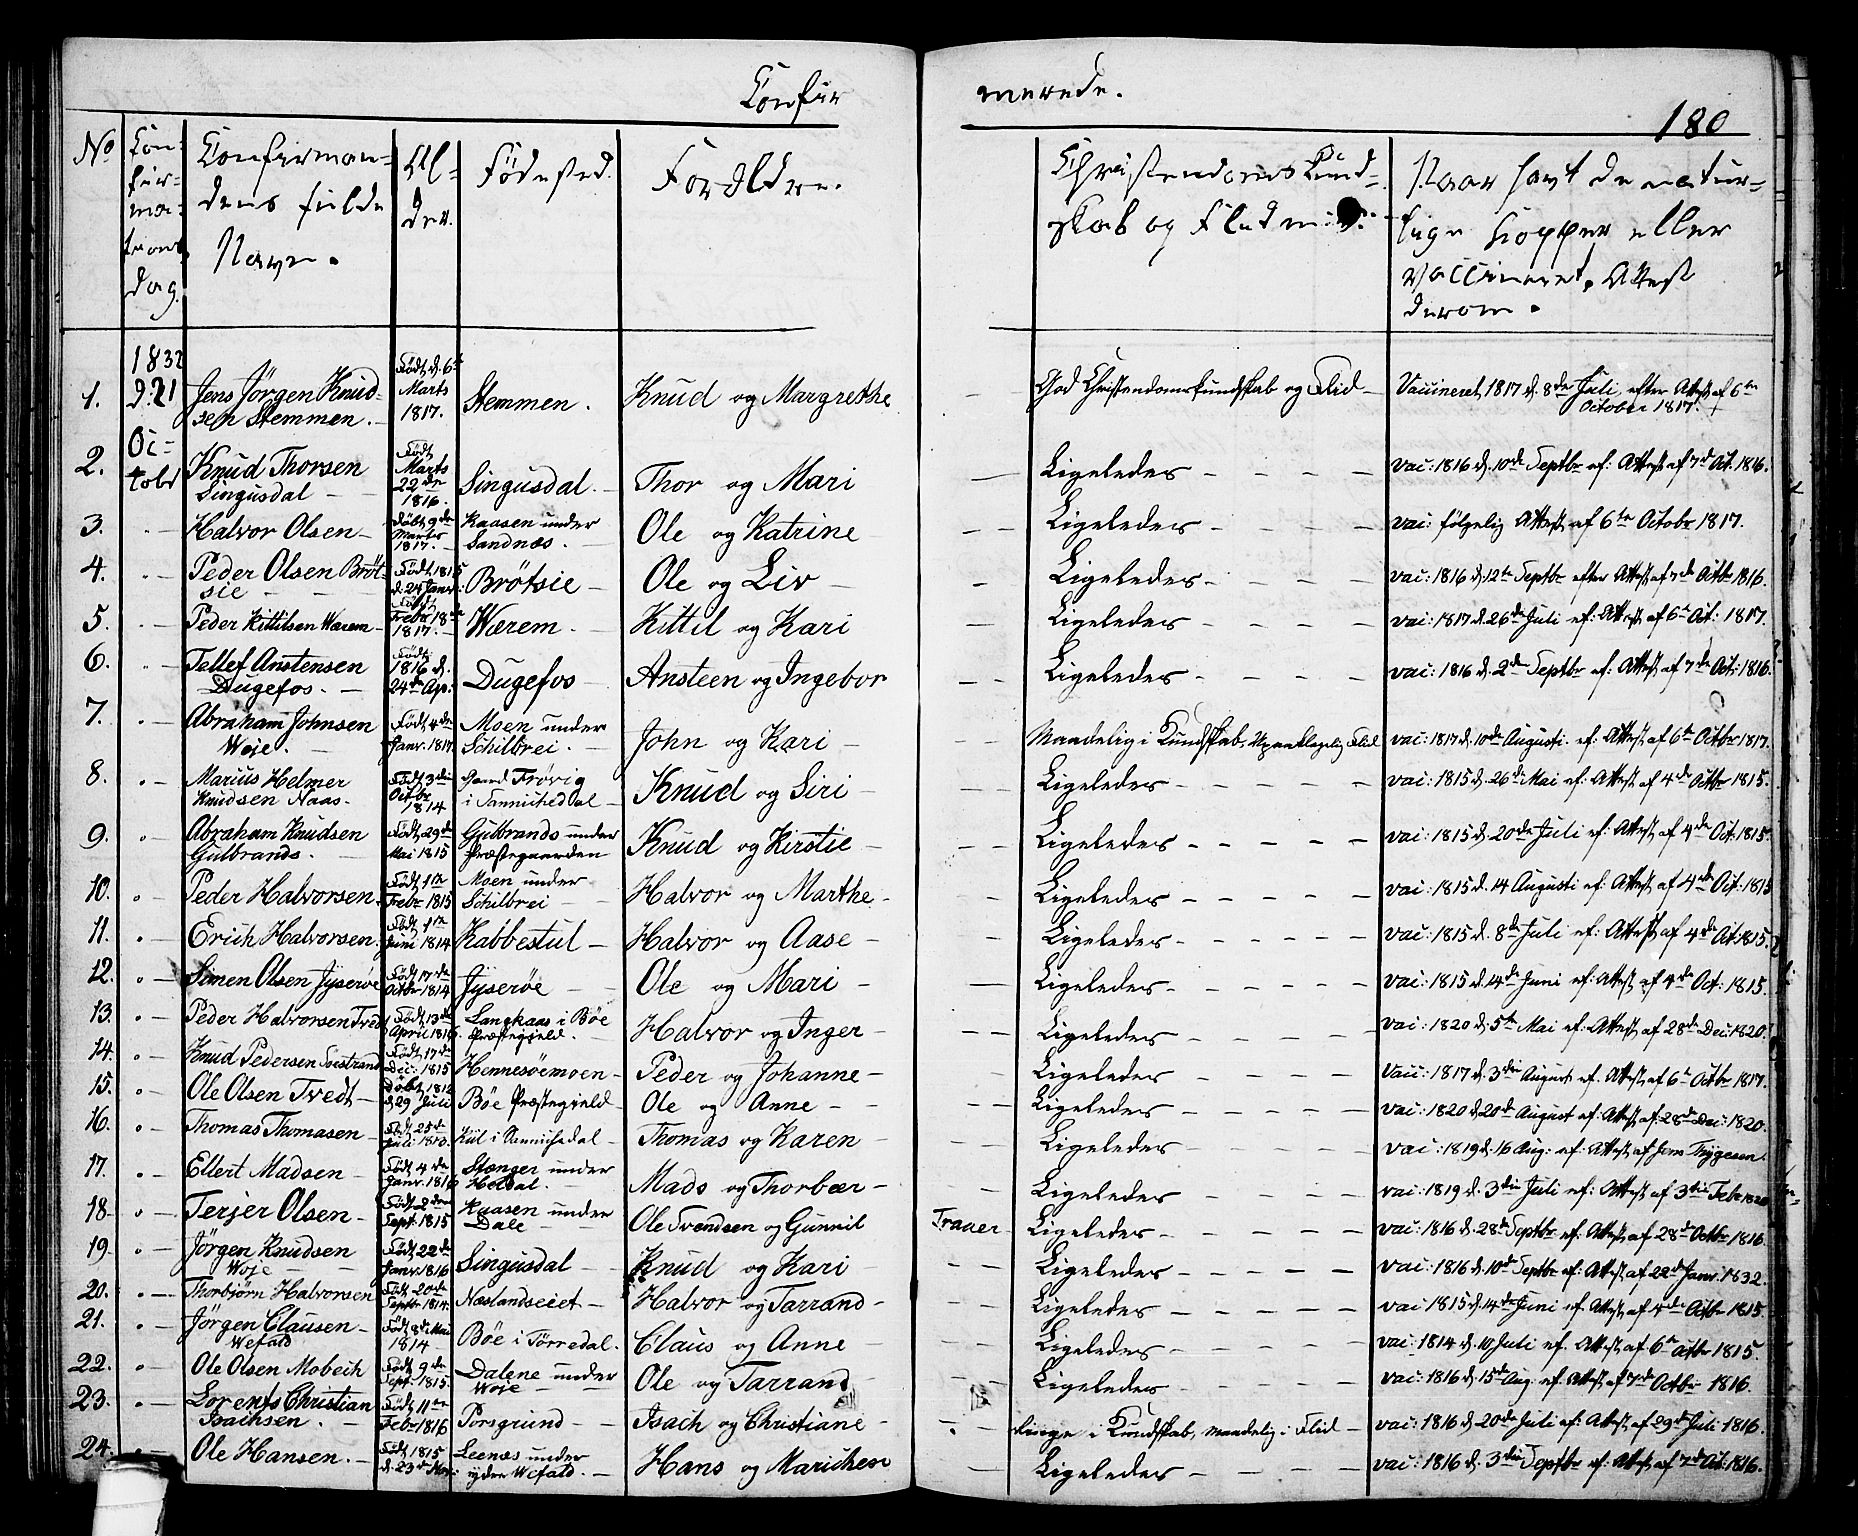 Confir
merede.
180
No
Con-
fir-
ma-
tions
dag.
Confirman-
dens fulde
Navn.
Al-
der.
Födested.
Forældre.
Christendoms Kund-
skab og Flid
Naar havt de natur-
lige Kopper eller
vaccineret. Attest
derom.
1832
D. 21
Oc-
tobr
1. Jens Jörgen Knud- Födt d. 6te Stemmen. Knud og Margrethe — God Christendomskundskab og Flid — Vaccineret 1817 d. 8de Juli efter Attest af 6te
sen Stemmen. — Marts 1817. October 1817.
2. Knud Thorsen Födt Marts Singusdal. — Thor og Mari — Ligeledes — — — — vac: 1816 d. 10de Septbr ef: Attest af 7d Oct. 1816.
Singusdal — — 22de 1816.
3. — Halvor Olsen — Döbt 9de Kaasen under Ole og Katrine — — Ligeledes — — — — vac: fölgelig Attest af 6te Octobr 1817.
Marts 1817. — Sandnæs. —
4. — Peder Olsen Bröt- Födt 1815 Brötsie — Ole og Liv — Ligeledes — — — — vac: 1816 d. 12te Septbr efter Attest af 7de Octbr 1816.
sie — — d. 24 Janr.
5. — Peder Kittilsen Wærem — Födt Febr 18de Wærem. — Kittil og Kari — Ligeledes — — — — vac: 1817 d. 26de Juli ef: Attest af 6te Oct: 1817.
1817. —
6. — Tellef Anstensen Födt 1816 d. Dugefos — Ansteen og Ingebor — — Ligeledes — — — — vac: 1816 d. 2de Septbr ef: Attest af 7de Oct: 1816.
Dugefos. — 24de Apr:
7. — Abraham Johnsen Födt 4de Moen under John og Kari — — Maadelig i Kundskab, Upaaklagelig Flid vac: 1817 d. 10de Augusti ef: Attest af 6te Octbr 1817.
Woje. — Janr. 1817. Schilbrei. —
8. — Marius Helmer Födt 3die Gaard Frövig Knud og Siri — — Ligeledes — — — — vac: 1815 d. 26de Mai ef: Attest af 4de Octbr 1815.
Knudsen Naas. — Octbr 1814 i Sannichedal —
9. — Abraham Knudsen Födt 29de Gulbrands under Knud og Kirstie — — — Ligeledes — — — — vac: 1815 d. 20de Juli ef: Attest af 4de Oct. 1815.
Gulbrands. — Mai 1815 Præstegaarden
10. — Peder Halvorsen. Födt 1te Moen under Halvor og Marthe — — Ligeledes — — — — vac: 1815 d. 14 Augusti ef: Attest af 4de Oct: 1815
Febr 1815 Schilbrei —
11. — Erich Halvorsen. Födt 1te Kabbestul — Halvor og Aase — — Ligeledes — — — — vac: 1815 d. 8de Juli ef: Attest af 4de Oct: 1815.
Juni 1814
12. — Simen Olsen Jyseröe Födt 17de Jyseröe — — Ole og Mari — — Ligeledes — — — — vac: 1815 d. 14de Juni ef: Attest af 4de Oct: 1815.
Octbr 1814
13. — Peder Halvorsen Tvedt Födt 13de Langkaas i Böe Halvor og Inger — — — Ligeledes — — — — vac: 1820 d. 5te Mai ef: Attest af 28de Dec: 1820.
April 1816. Præstegjeld. —
14. — Knud Pedersen Födt 17de Hennesöemoen — Peder og Johanne — — Ligeledes — — — — Vacc: 1817 d. 3die August ef. Attest af 6te Octbr 1817.
Dec: 1815
15. — Ole Olsen Tvedt — Döbt 1812 Böe Præstegjeld — Ole og Anne — — — — Ligeledes — — — — vac: 1820 d. 20de August ef: Attest af: 28de Dec: 1820.
d. 29 Juli
16. — Thomas Thomasen — Födt 25de Kiil i Sannichedal — Thomas og Karen — — — Ligeledes — — — — vac: 1819 d. 16 Aug: ef: Attest af Jens Thygesen.
17. — Ellert Madsen — Födt 4de Stænger under Mads og Thorbær — — Ligeledes — — — — vac: 1819 d. 3die Juli ef: Attest af 3die Febr 1820
Janr. 1816 Heldal. —
18. — Terjer Olsen — Födt 2den Kaasen under Ole Svendsen og Gunnil Traaer — Ligeledes — — — — vac: 1816 d. 28de Septbr ef: Attest af 28de Octbr 1816.
Sept: 1815 Dale —
19. — Jörgen Knudsen Födt 22de Singusdal — — Knud og Kari — — — Ligeledes — — — — vac: 1816 d. 10de Septbr ef: Attest af 22de Janr. 1832.
Woje — — Janr. 1816
20. — Thorbjörn Halvorsen Födt 20de Næslandseiet — Halvor og Tarrand — — — Ligeledes — — — — vac: 1815 d. 14de Juni ef: Attest af 4de Octbr 1815.
Septbr 1814.
21. — Jörgen Clausen — Födt 8de Mai Böe i Törredal. Claus og Anne — — — Ligeledes — — — — vac: 1814 d. 10 Juli ef: Attest af 6te Octbr 1815.
Wefald 1814 —
22. — Ole Olsen Mobech Födt 9de Dalene under Ole og Tarrand — — Ligeledes — — — — vac: 1816 d. 15de Aug. ef: Attest af 7de Octbr 1816.
Septr 1815. Woje — —
23. — Lorents Christian Födt 11te Porsgrund — — Isach og Christiane — — Ringe i Kundskab, maadelig i Flid — vac: 1816 d. 20de Juli ef: Attest af 29de Juli 1816.
Isachsen. — Febr 1816
24. — Ole Hansen. — Födt 1815 Leenæs under Hans og Marichen — — Ligeledes — — — — vac: 1816 d. 3die Septbr ef: Attest af 7de Oct: 1816.
d. 23de Nov: ydre Wefald. —